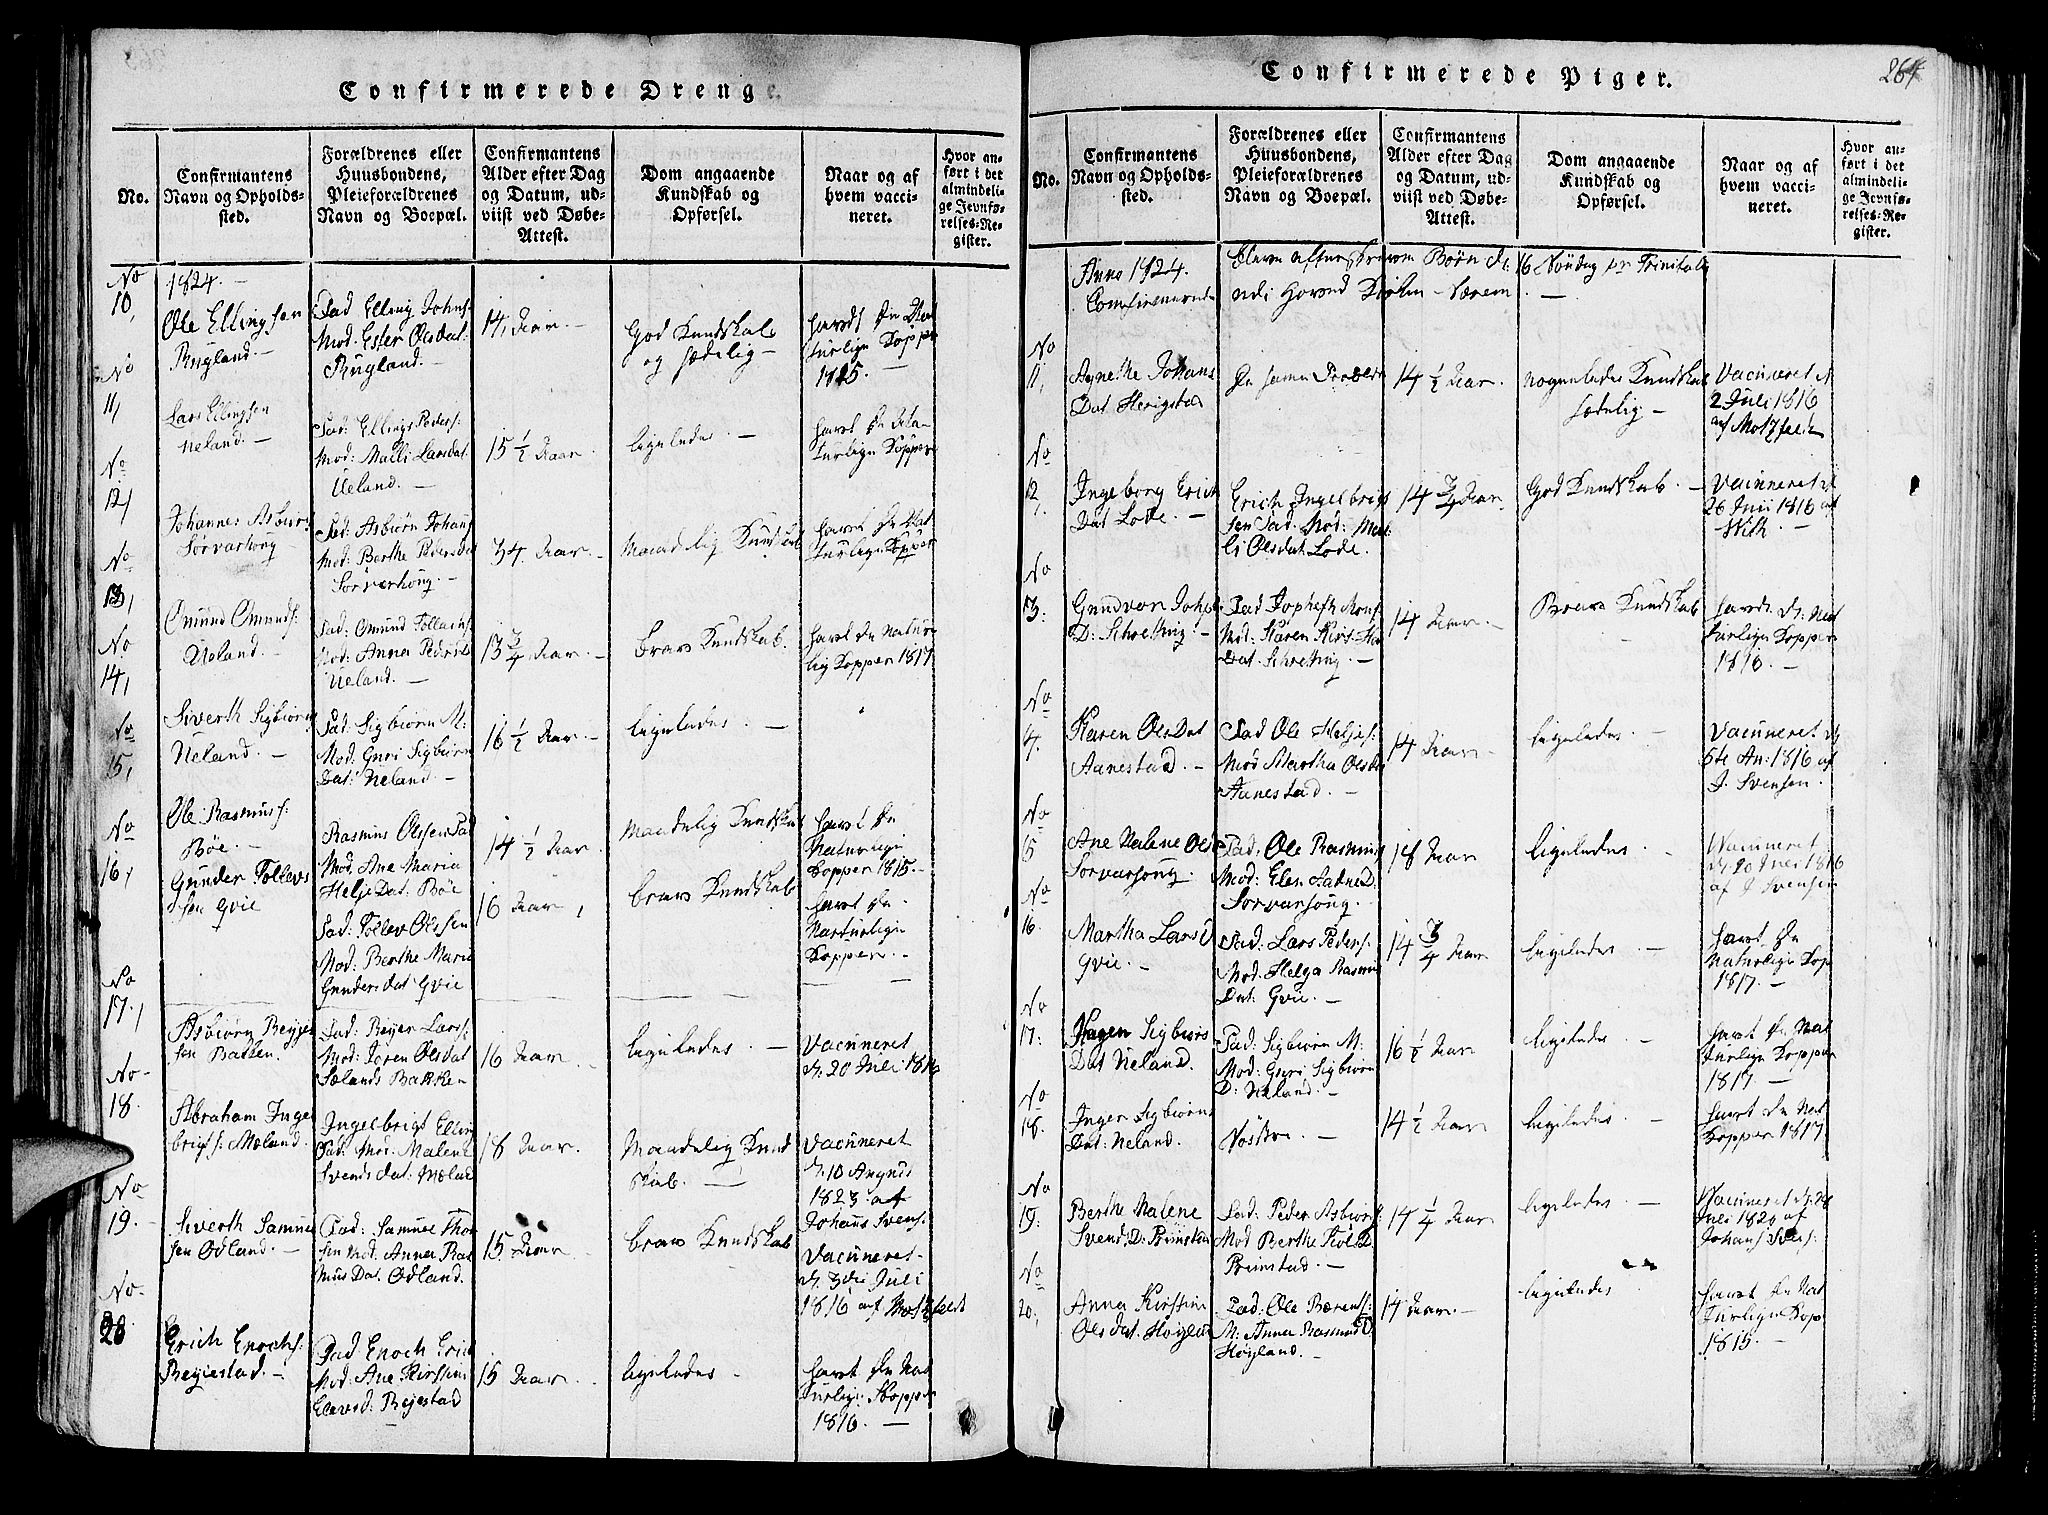 Confirmerede Drenge.
No.
Confirmantens
Navn og Opholds-
sted.
Forældrenes eller
Huusbondens,
Pleieforældrenes
Navn og Boepæl.
Confirmantens
Alder efter Dag
og Datum, ud-
viist ved Døbe-
Attest.
Dom angaaende
Kundskab og
Opførsel.
Naar og af
hvem vacci-
neret.
Hvor an-
ført i det
almindeli-
ge Jevnfø-
relses-Re-
gister.
1824. —
No
10,
Ole Ellingsen
Rugland. —
Fad Elling Johns:
Mod. Ester Olsdat:
Rugland. —
14, Aar. —
God Kundskab
og sædelig —
havdt de Nat
turlige Kopper
1815. —
No
11,
Lars Ellingsen
Ueland. —
Fad: Ellings Peders:
Mod: Malli Larsdat.
Ueland. —
15 1/2 Aar.
ligeledes. —
havt de Na
turlige Kopper
No
12,
Johannes Asbiørs
Sørvarhoug
Fad: Asbiørn Johans
Mod: Berthe Pedersdat
Sørvarhoug. —
Maadelig Kundskab
havt de Nat
turlige Kopper
No
13,
Omund Omunds:
Ueland. —
Fad: Omund Tollachs:
Mod: Anna Peders
Ueland. —
13 3/4 Aar. —
brav Kundskab.
havt de Natur
lig Kopper 1817
No
14,
Siverth Sigbiørns
Ueland. —
Fad: Sigbiørn M:
Mod: Guri Sigbiørn
Dat: Ueland. —
16 1/2 Aar. —
ligeledes —
No
15,
Ole Rasmus:
Bøe. —
Rasmus Olssen Fad
Mod. Ane Maria
Helje Dat: Bøe
14 1/2 Aar.
Maadelig Kundskab
havt de
Naturlige
Kopper 1815. —
No
16,
Gunder Tollevs
sen Gvie
Fad: Tollev Olssen
Mod: Berthe Maria
Gunders dat Gvie
16 Aar,
brav Kundskab
havt de
Narturlige
Kopper. —
No
17,
Asbiørn Reijer
sen Bakken.
Fad: Reijer Lars:
Mod: Joren Olsdat
Sælands Bakken
16 Aar.
ligeledes. —
Vacuneret
d. 20 Juli 1816
No
18.
Abraham Inge
brigt: Mæland.
Ingelbrigt Elling
Fad: Mod: Malene
Svends dat: Mælad
18 Aar.
Maadelig Kund
skab. —
Vacuneret
d. 10 August
1823 af
Johans Svens:
No
19.
Siverth Samue
sen Odland. —
Fad: Samue Tho
sen Mod: Anna Ras
mus Dat. Odland.
15 Aar
brav Kundskab
Vacuneret
d. 3die Juli
1816 af Motzfeldt
No.
20
Erich Enochs:
Rejestad. —
Fad Enoch Erich
Mod: Ane Kirstine
Elevsd: Rejestad
15 Aar. —
ligeledes —
havt de Nat
turlige Kopper
1816. —
Confirmerede Piger.
264
No.
Confirmantens
Navn og Opholds-
sted.
Forældrenes eller
Huusbondens,
Pleieforældrenes
Navn og Boepæl.
Confirmantens
Alder efter Dag
og Datum, ud-
viist ved Døbe-
Attest.
Dom angaaende
Kundskab og
Opførsel.
Naar og af
hvem vacci-
neret.
Hvor an-
ført i det
almindeli-
ge Jevnfø-
relses-Re-
gister.
Anno 1824.
Børn d: 16 Søndag pr Trinitatis
udi Hoved Kirken
No
11,
Agnethe Johans
Dat Herigstad
14 1/2 Aar.
nogenledes Kundskab
sædelig —
Vacuneret d
2 Juli 1816
af Motzfeldt
No
12,
Ingeborg Erich
Dat Lode. —
Erich Ingelbrigt
sen Fad. Mod: Mal
li Olsdat Lode.
14 3/4 Aar.
God Kundskab. —
Vacuneret d
26 Juli 1816 af
With. —
No
13:
Gundvor
D: Schretting. —
Mod: Karen Kirs
Dat. Schretting. —
14 Aar. —
Brav Kundskab
—
havdt d: Nat
turlige Kopper
1816. —
No
14.
Karen Ols Dat
Aanestad. —
Fad Ole Heljes:
Mod Martha Olsda
Aanestad. —
14 Aar. —
ligeledes. —
Vacuneret d
6te Au: 1816 af
J. Svensen. —
No
15
Ane Malene Ols
Sørvarhoug.
Fad. Ole Rasmus
Mod: Elen Aadne D.
Sørvarhoug.
18 Aar
ligeledes. —
Vacuneret
d. 20 Juli 1816
af J Svensen
No
16.
Martha Lars D
Gvie. —
Fad: Lars Peders:
Mod: Helga Rasmus
Dat: Gvie. —
14 3/4 Aar
ligeledes. —
havt de
Naturlige Kop
1817. —
No
17:
Sigbiørs
Dat Ueland.
Fad: Sigbiørn M:
Mod: Guri Sigbiørn
D: Ueland. —
16 1/2 Aar
ligeledes —
havt de Nat
turlige Kopper
1817 —
No
18.
Inger Sigbiørns
Dat: Ueland.
14 1/2 Aar
ligeledes. —
havt de Nat
Kopper 1817.
No
19:
Berthe Malene
Svends D: Primstad
Fad: Peder Asbiørs:
Mod Berthe
Primstad. —
14 1/4 Aar
ligeledes. —
Vacuneret
Juli 1820 af
Johans Svens:
No
20,
Anna Kirstine
Ols dat. Høyland
Fad: Ole Bærents:
M: Anna Rasmus D
Høyland. —
14 Aar. —
ligeledes
havt de Nat
turlige Kop
1815. —